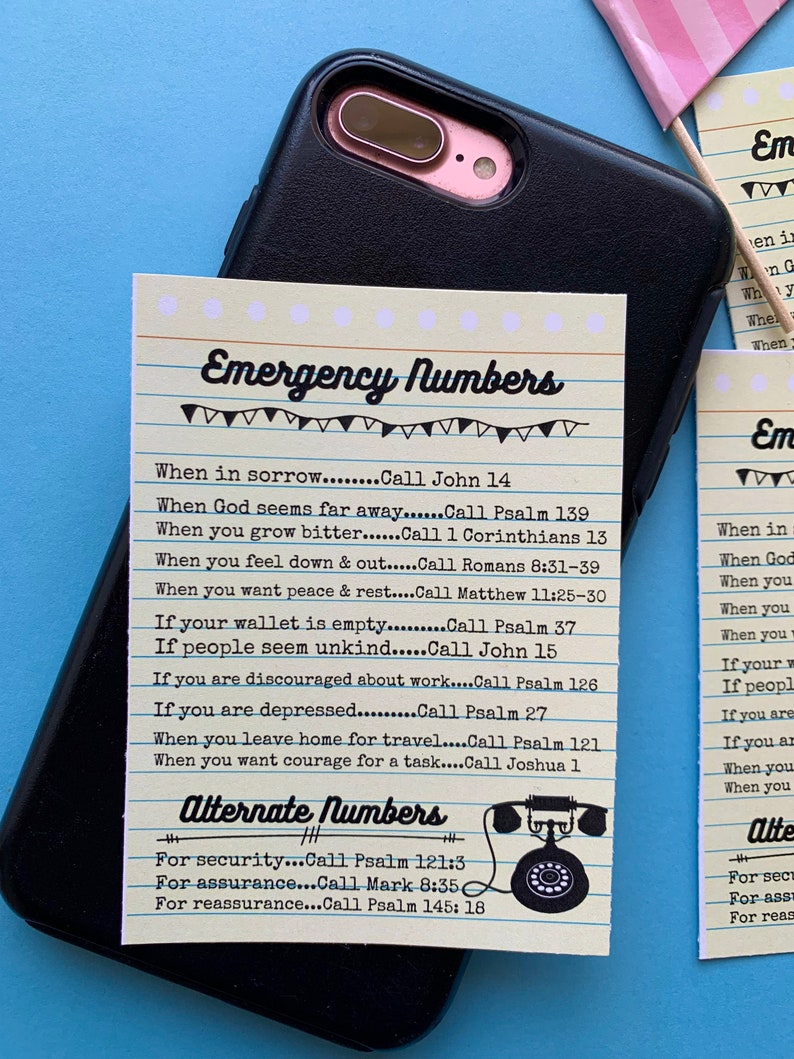 Emergency Numbers
When in sorrow........Call John 14
When God seems far away......Call Psalm 139
When you grow bitter......Call 1 Corinthians 13
When you feel down & out.....Call Romans 8:31-39
When you want peace & rest....Call Matthew 11:25-30
If your wallet is empty.........Call Psalm 37
If people seem unkind.....Call John 15
If you are discouraged about work....Call Psalm 126
If you are depressed.........Call Psalm 27
When you leave home for travel....Call Psalm 121
When you want courage for a task....Call Joshua 1
Alternate Numbers
For security...Call Psalm 121:3
For assurance...Call Mark 8:35
For reassurance...Call Psalm 145: 18
Em
When
When y
When
When y
Em
When in
When God
When you
When you
When you
If your w
If peopl
If you are
If you ar
When you
When you
Alte
For secu
For assu
For reas